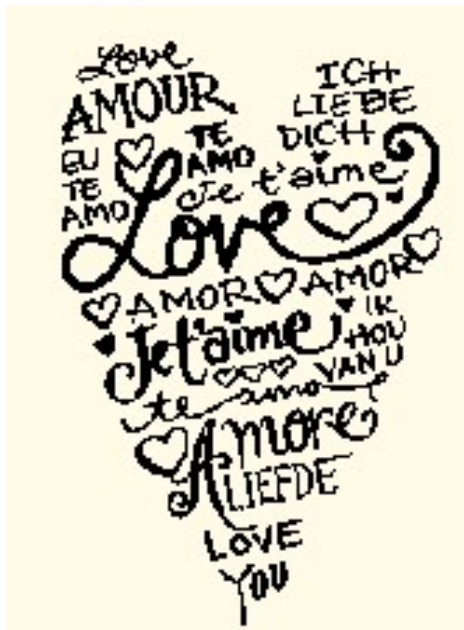 Love
AMOUR
ICH
LIEBE
DICH
EU
TE
AMO
TE
AMO
Je t'aime
Love
AMOR AMOR
Je t'aime
IK
HOU
VAN U
te amo
Amore
LIEFDE
LOVE
YOU